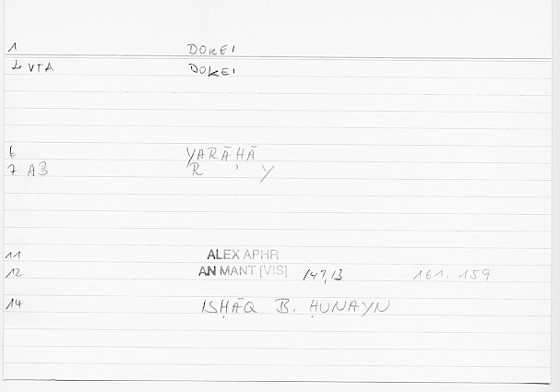 1 DOKEI
2 VTA DOKEI
6 YARĀHĀ
7 AB R Y
11 ALEX APHR
12 AN MANT [VIS] 147,13 161. 159
14 ISḤĀQ B. ḤUNAYN